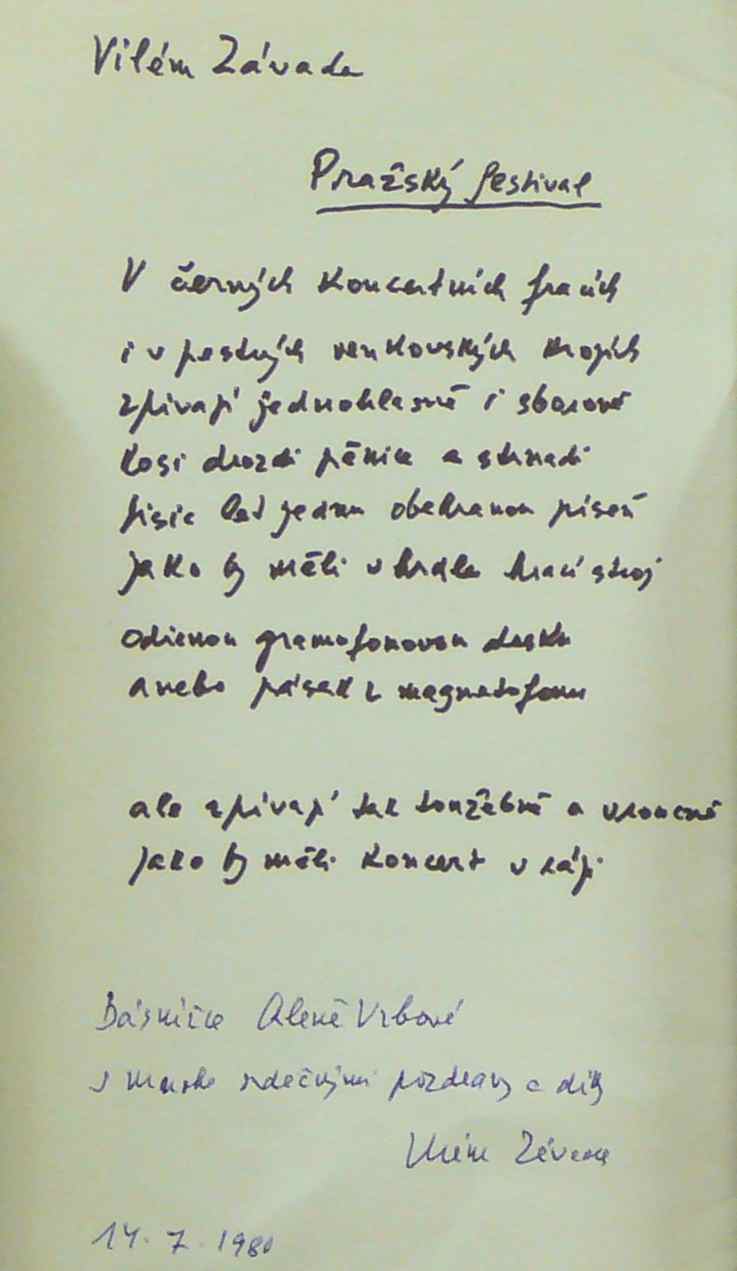 Vilém Závada
Pražský festival
V černých koncertních fracích
i v pestrých venkovských krojích
zpívají jednohlasně i sborově
kosi drozdi pěnice a strnadi
tisíc let jednu obehranou píseň
jako by měli v hrdle hrací stroj
odřenou gramofonovou desku
anebo pásek z magnetofonu
ale zpívají tak toužebně a vroucně
jako by měli koncert v ráji
Básnířce Aleně Vrbové
s mnoha srdečnými pozdravy a díky
Vilém Závada
14. 7. 1980